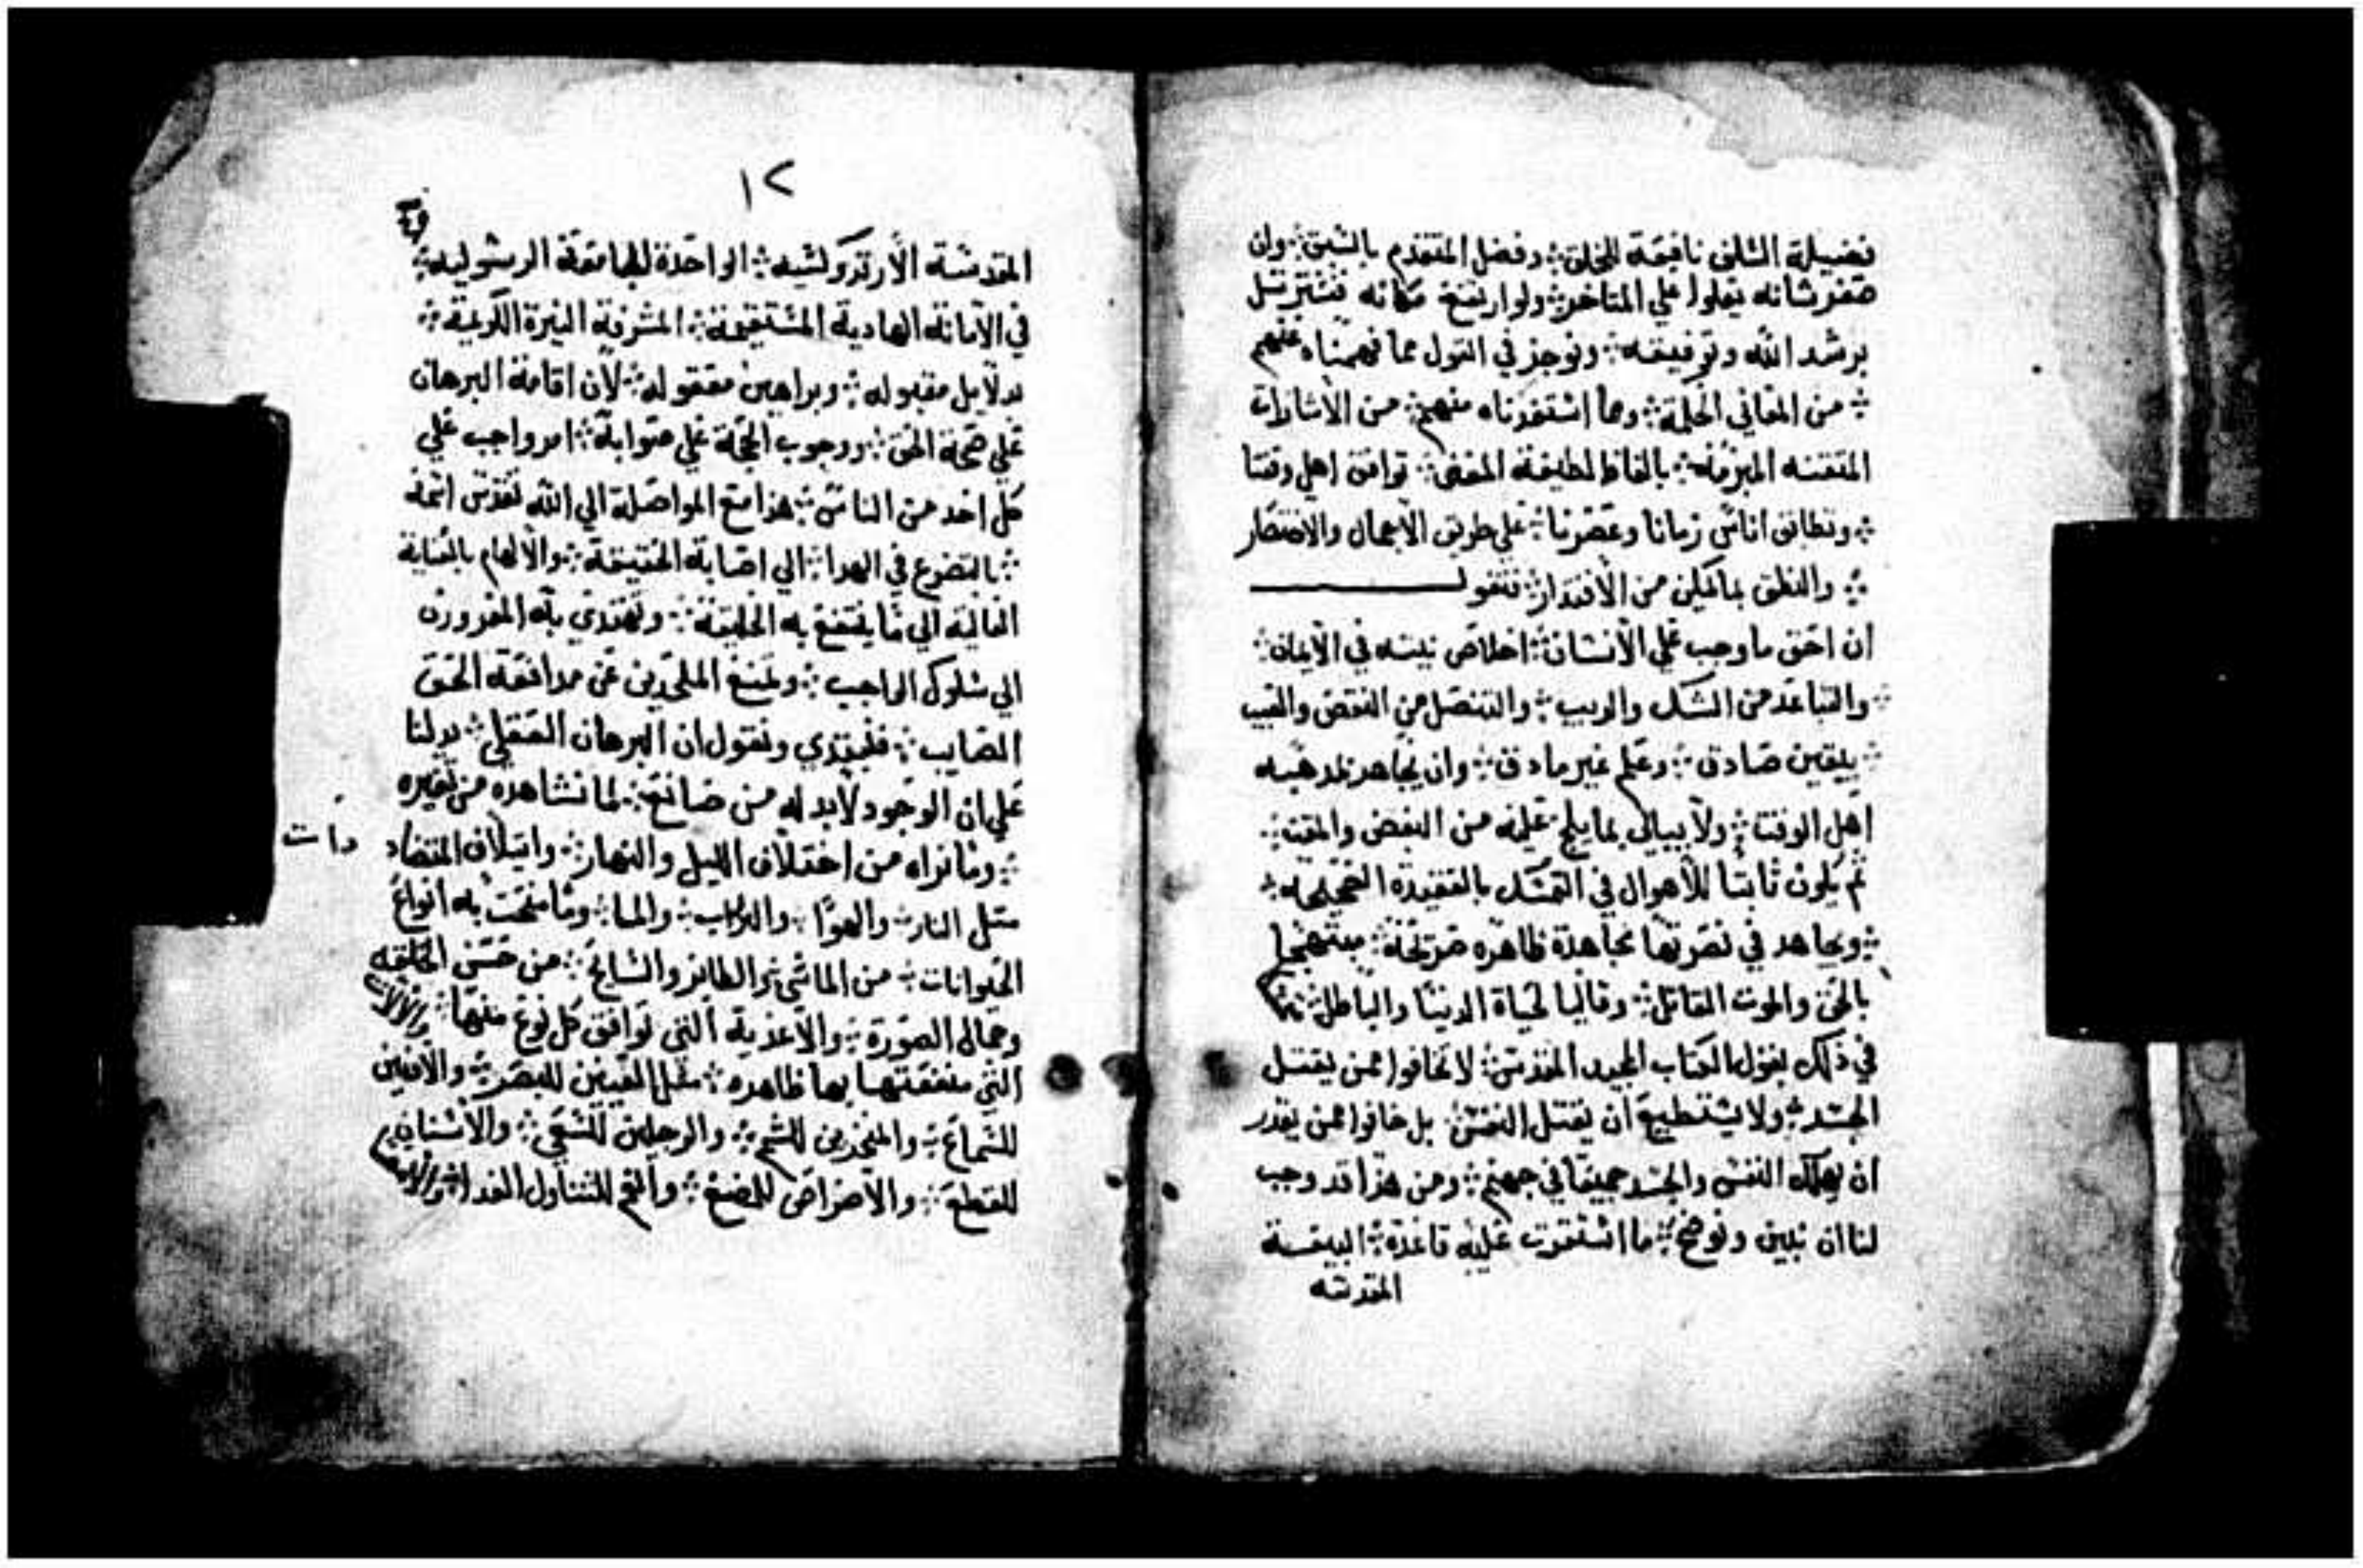 فضيلة السلف نافعة للخلق ⁘ وفضل المتقدم بالسبق ⁘ وان
صغر شانه يعلوا علي المتاخر ⁘ ولو ارتفع مكانه فنسترسل
برشد الله وتوفيقه ⁘ ونوجز في القول مما فهمناه عنهم
⁘ من المعاني الجلية ⁘ وما استفدناه منهم ⁘ من الاشارات
المتقنه المبرمه ⁘ بالفاظ لطيفة المعنى ⁘ توافق اهل وقتنا
⁘ وتطابق اناس زماننا وعصرنا ⁘ علي طريق الاجمال والاختصار
⁘ والنطق بما امكن من الاقتدار ⁘ فنقول
ان احق ما وجب علي الانسان ⁘ اخلاص نيته في الايمان ⁘
والتباعد من الشك والريب ⁘ والتنصل من النقص والعيب
⁘ بيقين صادق ⁘ وعلم غير مادق ⁘ وان يجاهر بمدهبه
اهل الوقتنا ⁘ ولا يبالي بما يلج عليه من البغض والمقت ⁘
ثم يكون ثابتا للاهوال في التمسك بالعقيدة الصحيحه ⁘
⁘ ويجاهد في نصرتها مجاهدة ظاهره صريحة ⁘ مبتهجا
بالحق والموت القاتل ⁘ وقاليا لحياة الدنيا والباطل ⁘
في ذلك بقول الكتاب المجيد المقدس ⁘ لا تخافوا ممن يقتل
الجسد ⁘ ولا يستطيع ان يقتل النفس ⁘ بل خافوا ممن يقدر
ان يهلك النفس والجسد جميعا في جهنم ⁘ ومن هذا قد وجب
لنا ان نبين ونوضح ⁘ ما استقرت عليه قاعدة ⁘ البيعة
المقدسه
١٢
المقدسة الارتدوكسيه ⁘ الواحدة الجامعة الرسوليه ⁘
في الامانة الهادية المستقيمة ⁘ المشرفة النيرة الكريمة ⁘
بدلايل مقبوله ⁘ وبراهين معقوله ⁘ لان اقامة البرهان
علي صحة الحق ⁘ ووجوب الحجة علي صوابه ⁘ امر واجب علي
كل احد من الناس ⁘ هذا مع المواصلة الي الله تقدس اسمه
⁘ بالتضرع في الهدا ⁘ الي اصابة الحقيقة ⁘ والالهام بالعناية
العالية الي ما ينتفع به الخليقة ⁘ ويهتدي به المغرورن
الي سلوك الواجب ⁘ ويمنع الملحدين عن مدافعة الحق
الصايب ⁘ فنبتدي ونقول ان البرهان العقلي ⁘ يدلنا
علي ان الوجود لابد له من صانع ⁘ لما نشاهده من تغيره
⁘ وما نراه من اختلاف الليل والنهار ⁘ وايتلاف المتضادات
متل النار ⁘ والهوا ⁘ والتراب ⁘ والما ⁘ وما منحت به انواع
الحيوانات ⁘ من الماشي ⁘ والطاير والسابح ⁘ من حسن الخلقه
وجمال الصورة ⁘ والاغدية التي توافق كل نوع منها ⁘ والالات
التي منفعتها بها ظاهره ⁘ متل العينين للبصر ⁘ والادنين
للسماع ⁘ والمنخرين للشم ⁘ والرجلين للسعي ⁘ والاسنان
للقطع ⁘ والاضراس للمضغ ⁘ والفم لتناول الغدا ⁘